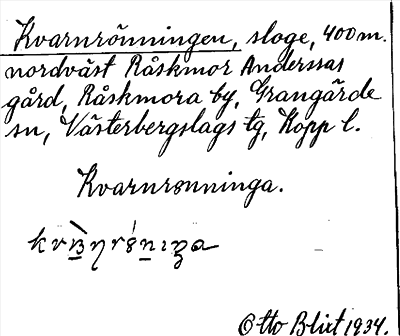 Kvarnrönningen, sloge, 400 m.
nordväst Råskmor Anderssas
gård, Råskmora by, Grangärde
sn, Västerbergslags tg, Kopp l.
Kvarnrønninga.
Otto Blixt 1934.